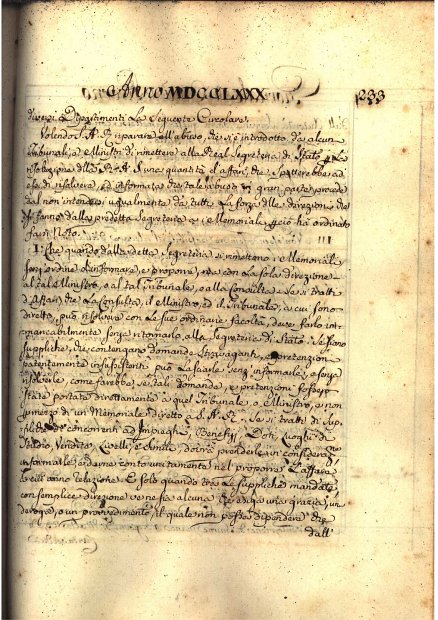 Anno MDCCLXXX
233
diversi Dipartimenti La Seguente Circolare.
Volendo S. A. R. riparare all'abuso, che si è introdotto da alcuni
Tribunali, e Ministri di rimettere alla Real Segreteria di Stato per La
risoluzione della R. A. S. una quantità d'affari, che Spetterebbe ad
essi di risolvere, ed informata che tale abuso in gran parte procede
dal non intendersi ugualmente da tutti La forza delle direzioni che
si danno dalla predetta Segreteria a i Memoriali, perciò ha ordinato
farsi Noto.
1.° Che quando dalla detta Segreteria si rimettono i Memoriali
senz'ordine d'informare, e proporre, ma con La sola direzione
al tal Ministro, o al tal Tribunale, o alla Consulta, Se si tratti
d'Affari, che La Consulta, il Ministro, ed il Tribunale, a cui sono
diretti, può risolvere con Le sue ordinarie facoltà, deve farlo im-
mancabilmente senza ritornarlo alla Segreteria di Stato. Se sono
Suppliche, che contengano domande stravaganti, e pretenzioni
patentemente insussistenti può Lasciarle senz'informarle, e senza
risolverle, come farebbe se tali domande, e pretenzioni fossero
State portate direttamente a quel Tribunale, o Ministro, e non
per mezzo di un Memoriale diretto a S. A. R. Se si tratti di Sup-
pliche di concorrenti ad Impieghi, Benefizj, Doti, Luoghi di
Studio, Vendite, Livelli, e Simili, dovrà prenderle in considerazione
informarle, e darne conto unitamente nel proporre L'affare
con La sua relazione. E solo quando tra Le suppliche mandate
con semplice direzione ve ne sia alcuna che esiga una grazia, una
deroga, o un provvedimento, il quale non possa dipendere che
dall'